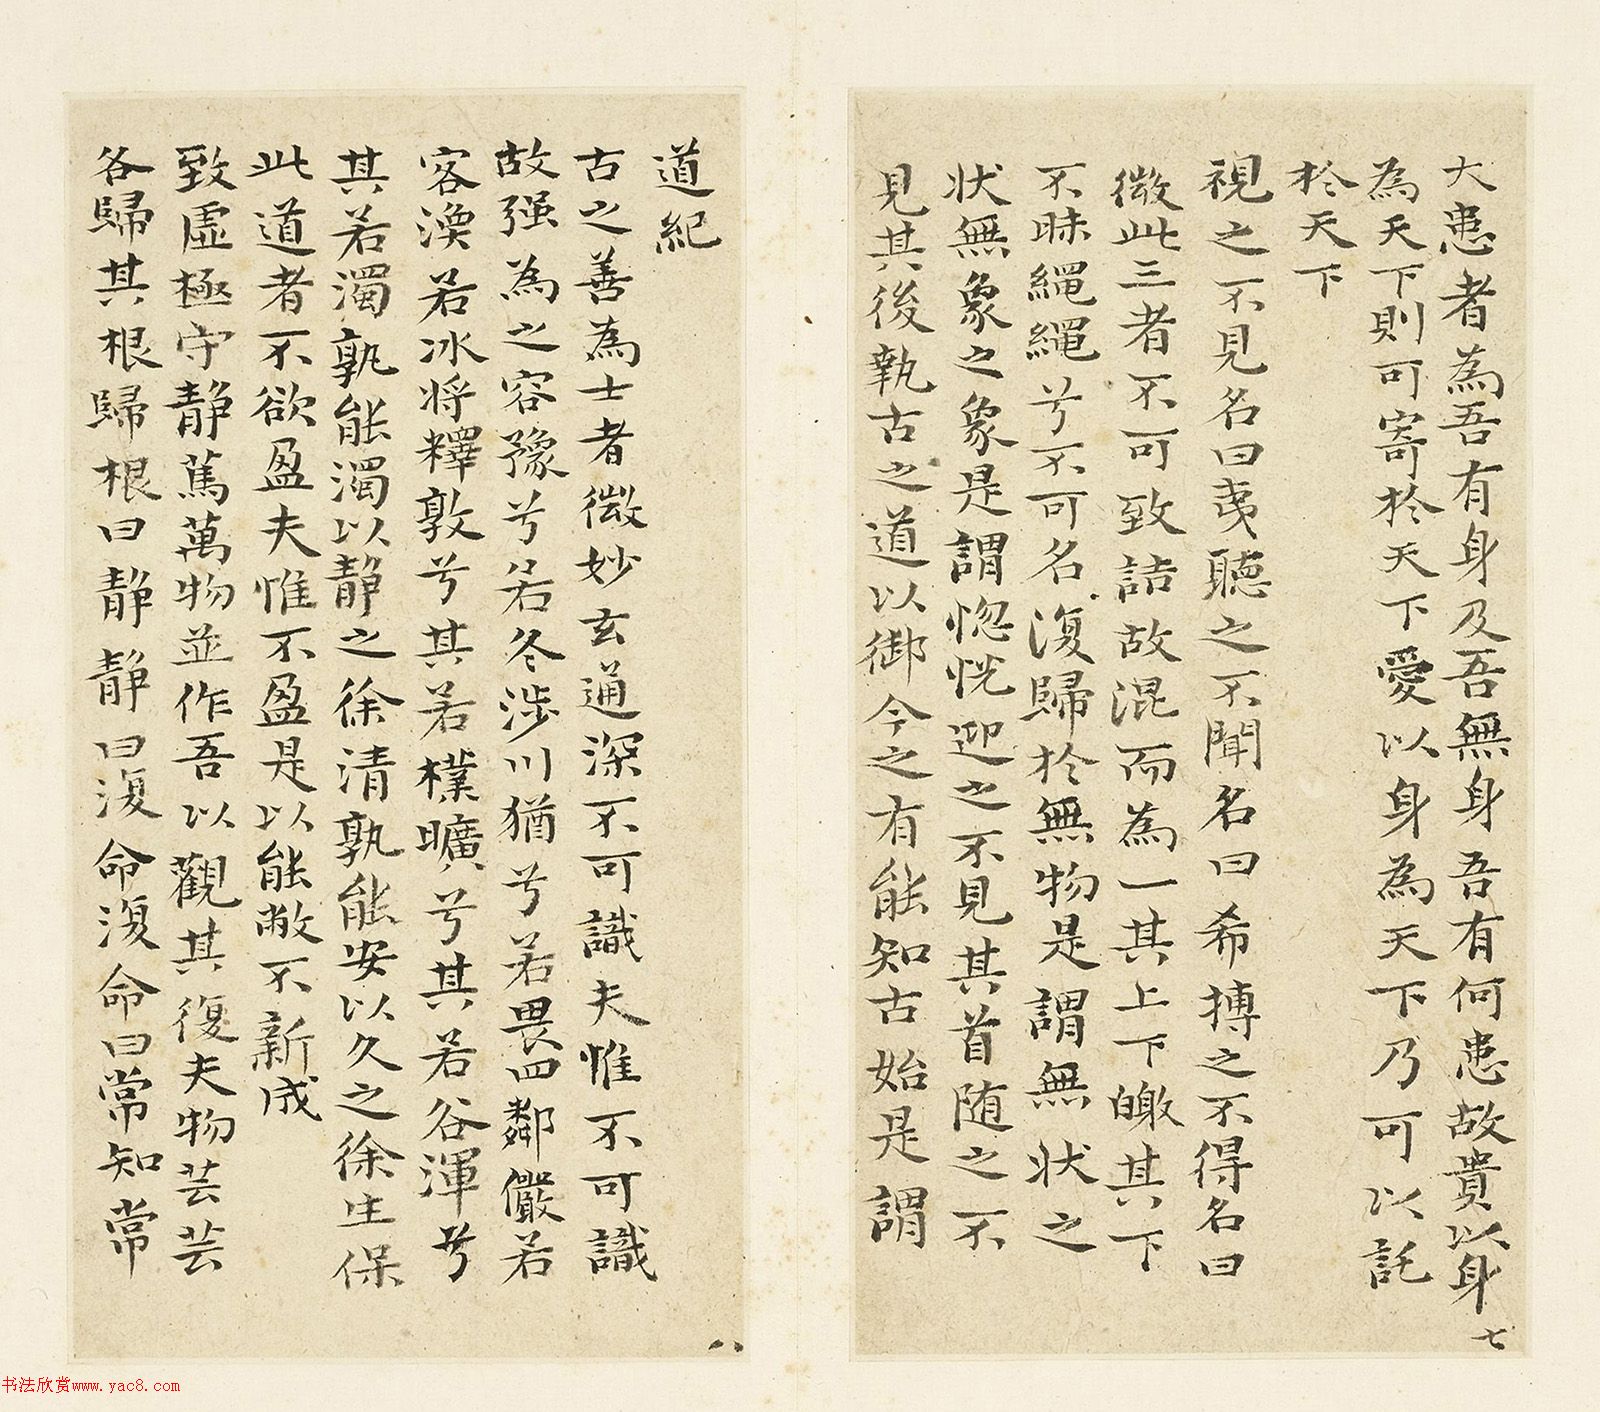 大患者為吾有身及吾無身吾有何患故貴以身
為天下則可寄於天下愛以身為天下乃可以託
於天下
視之不見名曰夷聽之不聞名曰希搏之不得名曰
微此三者不可致詰故混而為一其上下皦其下
不昧繩繩兮不可名復歸於無物是謂無狀之
狀無象之象是謂惚恍迎之不見其首随之不
見其後執古之道以御今之有能知古始是謂
七
道紀
古之善為士者微妙玄通深不可識夫惟不可識
故强為之容豫兮若冬涉川猶兮若畏四鄰儼若
客渙若冰将釋敦兮其若樸曠兮其若谷渾兮
其若濁孰能濁以静之徐清孰能安以久之徐生保
此道者不欲盈夫惟不盈是以能敝不新成
致虛極守静篤萬物並作吾以觀其復夫物芸芸
各歸其根歸根曰静静曰復命復命曰常知常
八
书法欣赏www.yac8.com